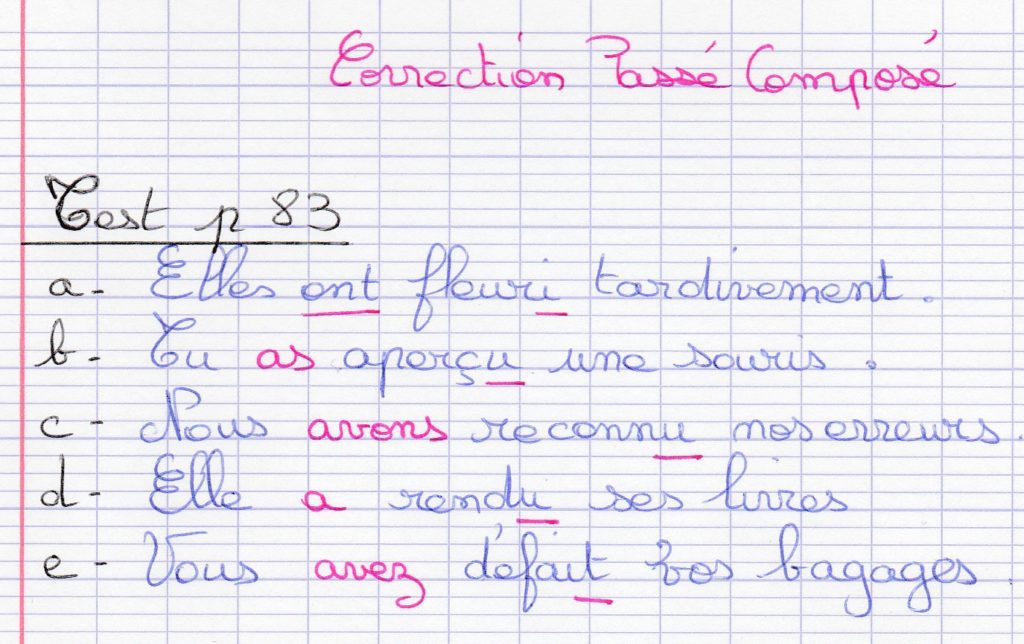 Correction Passé Composé
Test p 83
a- Elles ont fleuri tardivement.
b- Tu as aperçu une souris.
c- Nous avons reconnu nos erreurs.
d- Elle a rendu ses livres
e- Vous avez défait vos bagages.